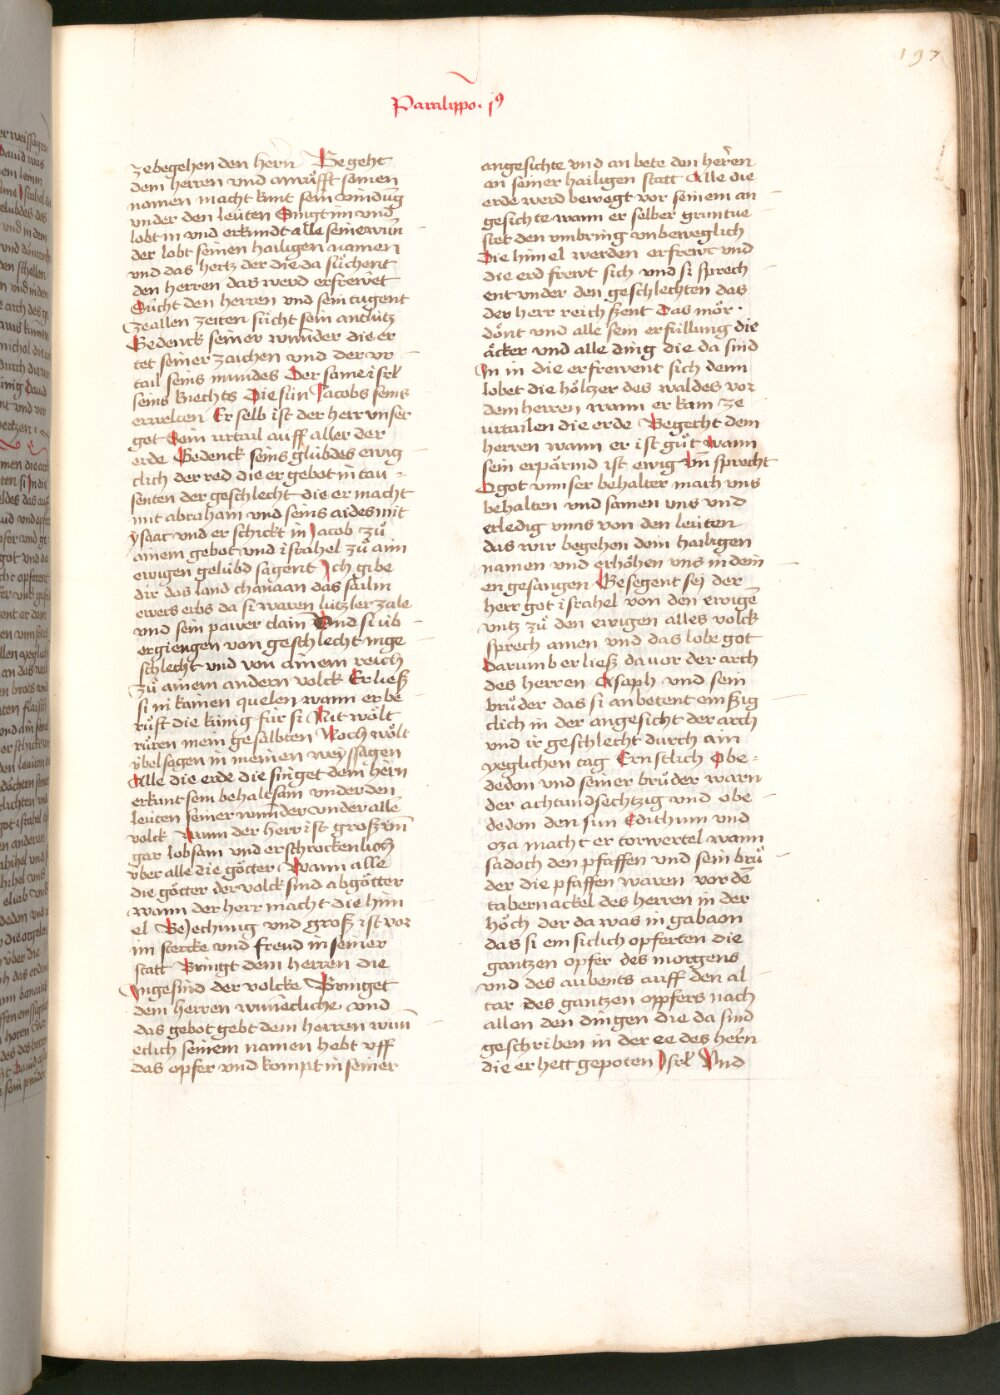 197
Paralippo. j9
zebegehen den hern Begeht
dem herren vnd anrüfft seinen
namen macht kunt sein vindūg
vnder den leüten Singt im vnd
lobt in vnd erkundt alle seine wun
der lobt seinen hailigen namen
vnd das hertz der die da süchent
den herren das werd erfrewet
Sücht den herren vnd sein tugent
zeallen zeiten sücht sein antlütz
Bedenck seiner wunder die er
tet seiner zaichen vnd der vr
tail seins mundes Der same isrl
seins knechts Die sün Jacobs seins
erwelten Er selb ist der herr vnser
got Sein vrtail auff aller der
erde Bedenck seins glübdes ewig
clich der red die er gebot in tau
senten der geschlecht die er macht
mit abraham vnd seins aides mit
ysaac vnd er schickt in Jacob zü
ainem gebot vnd israhel zü aim
ewigen gelübd sagent Ich gibe
dir das land chanaan das sailin
ewers erbs da si waren lützler zale
vnd sein pawer clain Vnd si üb
ergiengen von geschlecht inge
schlecht vnd von ainem reich
zü ainem andern volck Er ließ
si nikainen quelen wann er be
rüfft die künig für si Nit wölt
rüren mein gesalbten Noch wölt
übelsagen in meinen weyssagen
Alle die erde die singet dem hern
erkunt sein behaltsam vnder den
leüten seiner wunder vnder alle
volck Wann der herr ist groß vn̄
gar lobsam vnd erschrockenlich
über alle die götter Wann alle
die götter der volck sind abgötter
wann der herr macht die him
el Beiechung vnd groß ist vor
im stercke vnd freud in seiner
statt Bringt dem herren die
Ingesind der volcke Bringet
dem herren wunecliche vnd
das gebot gebt dem herren wun
eclich seinem namen hebt vff
das opfer vnd kompt in seiner
angesichte vnd an bete den herren
an seiner hailigen statt Alle die
erde werd bewegt vor seinem an
gesichte wann er selber gruntue
stet den vmbring vnbeweglich
Die himel werden erfrewt vnd
die erd frewt sich vnd si sprech
ent vnder den geschlechten das
der herr reichßent Das mör
dönt vnd alle sein erfüllung die
äcker vnd alle ding die da sind
In in die erfrewent sich denn
lobet die höltzer des waldes vor
dem herren wann er kam ze
urtailen die erde Begecht dem
herren wann er ist güt Wann
sein erpärmd ist ewig Vn̄ sprecht
O got vnnser behalter mach vns
behalten vnd samen vns vnd
erledig vnns von den leüten
das wir begehen dein hailigen
namen vnd erhöhen vns in dein
en gesangen Gesegent sej der
herr got israhel von den ewigē
vntz zü den ewigen alles volck
sprech amen vnd das lobe got
Darumb er ließ da vor der arch
des herren Asaph vnd sein
brüder das si anbetent emßig
clich in der angesicht der arch
vnd ir geschlecht durch ain
yeglichen tag Ernstlich Obe
dedon vnd seiner brüder warn
der achtundsechtzig vnd obe
dedon den sun Edithum vnd
oza macht er torwertel wann
sadoch den pfaffen vnd sein brü
der die pfaffen waren vor dē
tabernackel des herren in der
höch der da was in gabaon
das si emsiclich opferten die
gantzen opfer des morgens
vnd des aubents auff den al
tar des gantzen oppfers nach
allen den dingen die da sind
geschriben in der ee des hern
die er hett gepoten Isrl Vnd